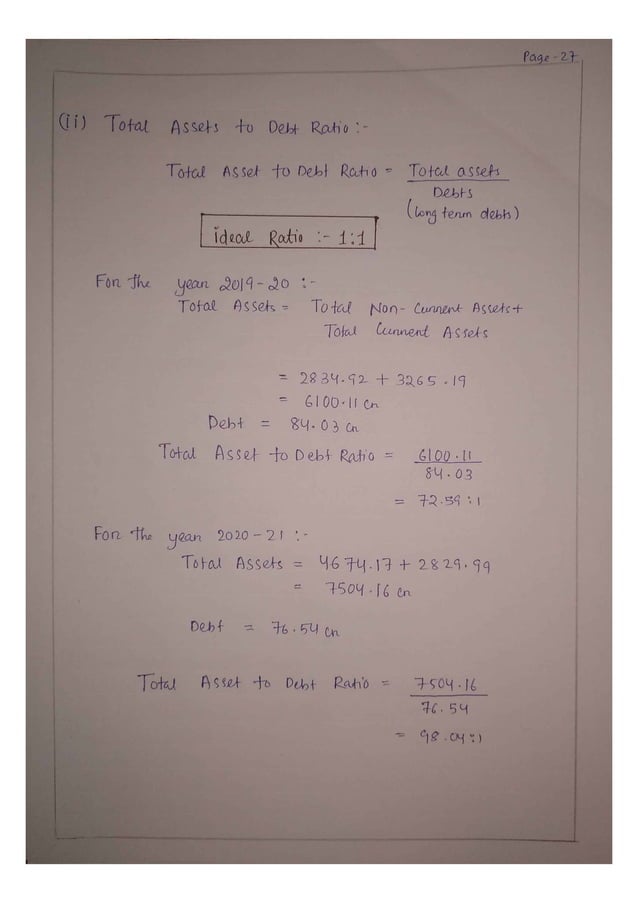 Page-27
(ii) Total Assets to Debt Ratio :-
Total Asset to Debt Ratio = Total assets
Debts
(long term debts)
ideal Ratio :- 1:1
For the year 2019-20 :-
Total Assets = Total Non-Current Assets+
Total Current Assets
= 2834.92 + 3265.19
= 6100.11 cr
Debt = 84.03 cr
Total Asset to Debt Ratio = 6100.11
84.03
= 72.59:1
For the year 2020-21 :-
Total Assets = 4674.17 + 2829.99
= 7504.16 cr
Debt = 76.54 cr
Total Asset to Debt Ratio = 7504.16
76.54
= 98.04:1